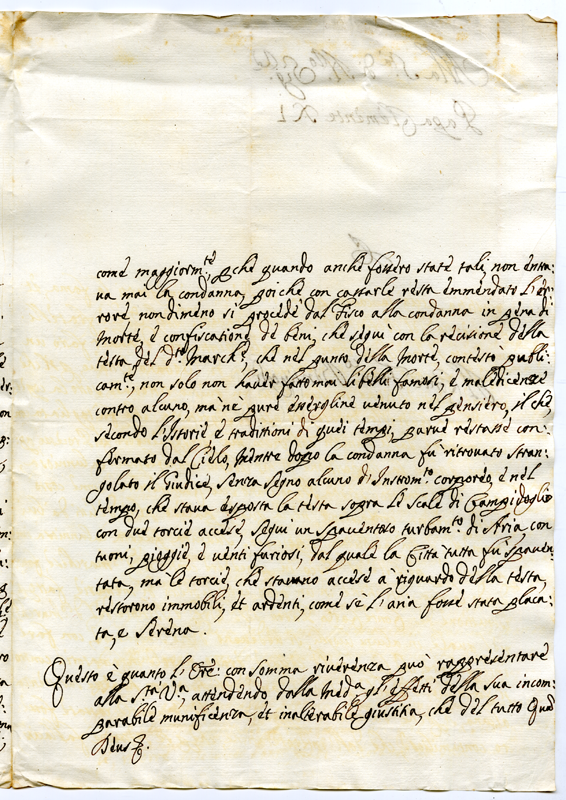 come maggiorm.te, p che quando anche fossero state tali, non entra:
ua mai la condanna, poiche con cassarle resta emmendato l'er:
rore nondimeno si procede dal Fisco alla condanna in pena di
Morte, è confiscatione de beni, che seguì con la recisione della
testa del d.o March.e, che nel punto della Morte, contesto publi:
cam.te, non solo non hauer fatto mai libelli famosi, è maledicenze
contro alcuno, ma ne pure essergline venuto nel pensiero, il che,
secondo l'Istorie è traditioni di quei tempi, parue restasse con:
firmato dal Cielo, mentre dopo la condanna fu ritrouato stran:
golato il Giudice, senza segno alcuno di Instrom.to corporeo, è nel
tempo, che staua esposta la testa sopra le scale di Campidoglio
con due torcie accese, seguì un spauentoso turbam.to di Aria con
tuoni, pioggie, è venti furiosi, dal quale la Città tutta fu spauen:
tata, ma le torcie, che stauano accese à riguardo della testa,
restorono immobili, et ardenti, come se l'aria fosse stata placa:
ta, e serena.
Questo è quanto l'Ore: con somma riuerenza può rappresentare
alla S.ta V.a, attendendo dalla med.a gl'effetti della sua incom:
parabile munificenza, et inalterabile giustitia, che del tutto Quã
Deus
Alla S.tà di N.ro Sig.re
Papa Clemente XI